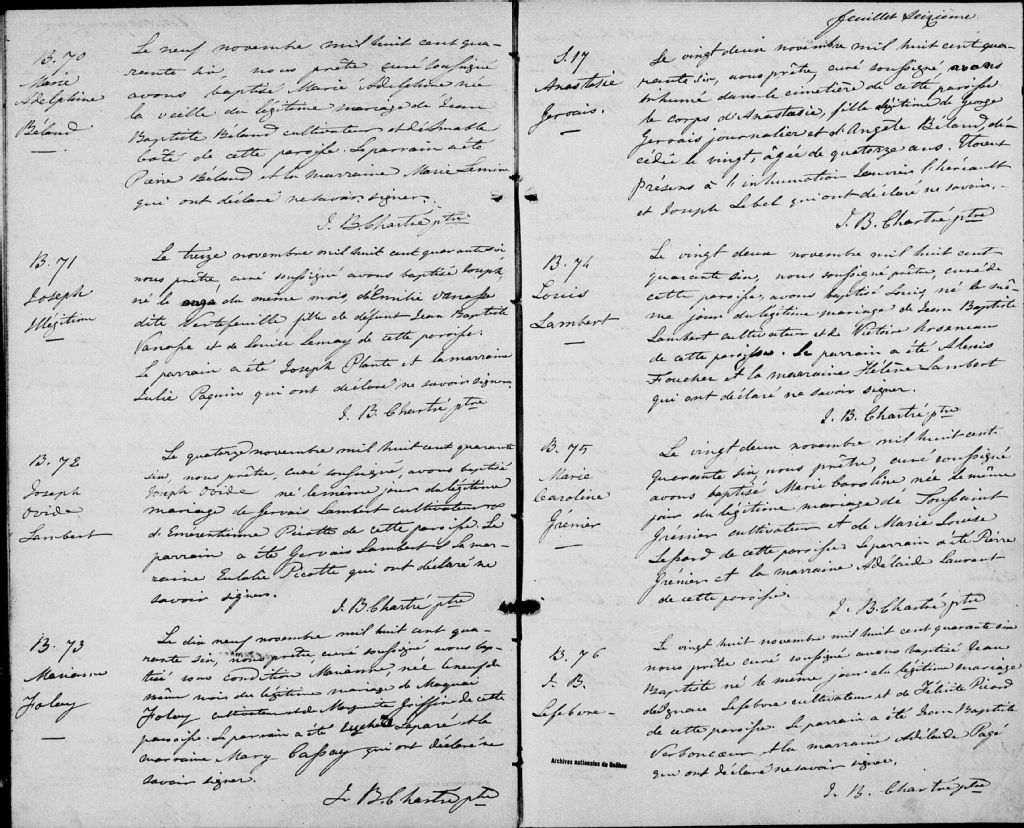 B. 70
Marie
Adelphine
Béland
Le neuf novembre mil huit cent qua-
rante six, nous prêtre curé soussigné
avons baptisé Marie Adelphine née
la veille du légitime mariage de Jean
Baptiste Béland cultivateur et
de cette paroisse. Le parrain a été
Pierre Béland et la marraine Marie
qui ont déclaré ne savoir signer.
J. B. Chartré ptre
B. 71
Joseph
Illégitime
Le treize novembre mil huit cent quarante six,
nous prêtre, curé soussigné avons baptisé Joseph,
né le onze du même mois, d'Emilie Vanasse
dite Vertefeuille fille de défunt Jean Baptiste
Vanasse et de Louise Lemay de cette paroisse.
Le parrain a été Joseph Plante et la marraine
Julie Paquin qui ont déclaré ne savoir signer.
J. B. Chartré ptre
B. 72
Joseph
Ovide
Lambert
Le quatorze novembre mil huit cent quarante
six, nous prêtre, curé soussigné, avons baptisé
Joseph Ovide né le même jour du légitime
mariage de Gervais Lambert cultivateur et
d'Emerentienne Picotte de cette paroisse. Le
parrain a été Gervais Lambert & la mar-
raine Eulalie Picotte qui ont déclaré ne
savoir signer.
J. B. Chartré ptre
B. 73
Marianne
Foley
Le dix neuf novembre mil huit cent qua-
rante six, nous prêtre, curé soussigné avons bap-
tisé sous condition Marianne, née le neuf du
même mois du légitime mariage de
Foley cultivateur et de Marguerite Griffin de cette
paroisse. Le parrain a été et la
marraine Mary Cassay qui ont déclaré ne
savoir signer.
J. B. Chartré ptre
feuillet Seizième
S. 17
Anastasie
Gervais.
Le vingt deux novembre mil huit cent qua-
rante six, nous prêtre, curé soussigné, avons
inhumé dans le cimetière de cette paroisse
le corps d'Anastasie, fille légitime de George
Gervais journalier et d'Angèle Béland, dé-
cédée le vingt, âgée de quatorze ans. Etoient
présens à l'inhumation L'héreault
et Joseph Lebel qui ont déclaré ne savoir.
J. B. Chartré ptre
B. 74
Louis
Lambert
Le vingt deux novembre mil huit cent
quarante six, nous soussigné prêtre, curé de
cette paroisse, avons baptisé Louis, né le mê-
me jour du légitime mariage de Jean Baptiste
Lambert cultivateur et de Victoire Arseneau
de cette paroisse. Le parrain a été Alexis
Foucher et la marraine Hélène Lambert
qui ont déclaré ne savoir signer.
J. B. Chartré ptre
B. 75
Marie
Caroline
Grénier
Le vingt deux novembre mil huit cent
quarante six, nous prêtre, curé soussigné
avons baptisé Marie Caroline née le même
jour du légitime mariage de Toussaint
Grénier cultivateur et de Marie Louise
de cette paroisse. Le parrain a été Pierre
Grenier et la marraine Adelaïde Laurent
de cette paroisse.
J. B. Chartré ptre
B. 76
J. B.
Lefebvre
Le vingt huit novembre mil huit cent quarante six
nous prêtre curé soussigné avons baptisé Jean
Baptiste né le même jour du légitime mariage
d'Ignace Lefebvre cultivateur et de Félicité Picard
de cette paroisse. Le parrain a été Jean Baptiste
Verboncœur & la marraine Adélaide Pagé
qui ont déclaré ne savoir signer.
J. B. Chartré ptre
Archives nationales du Québec